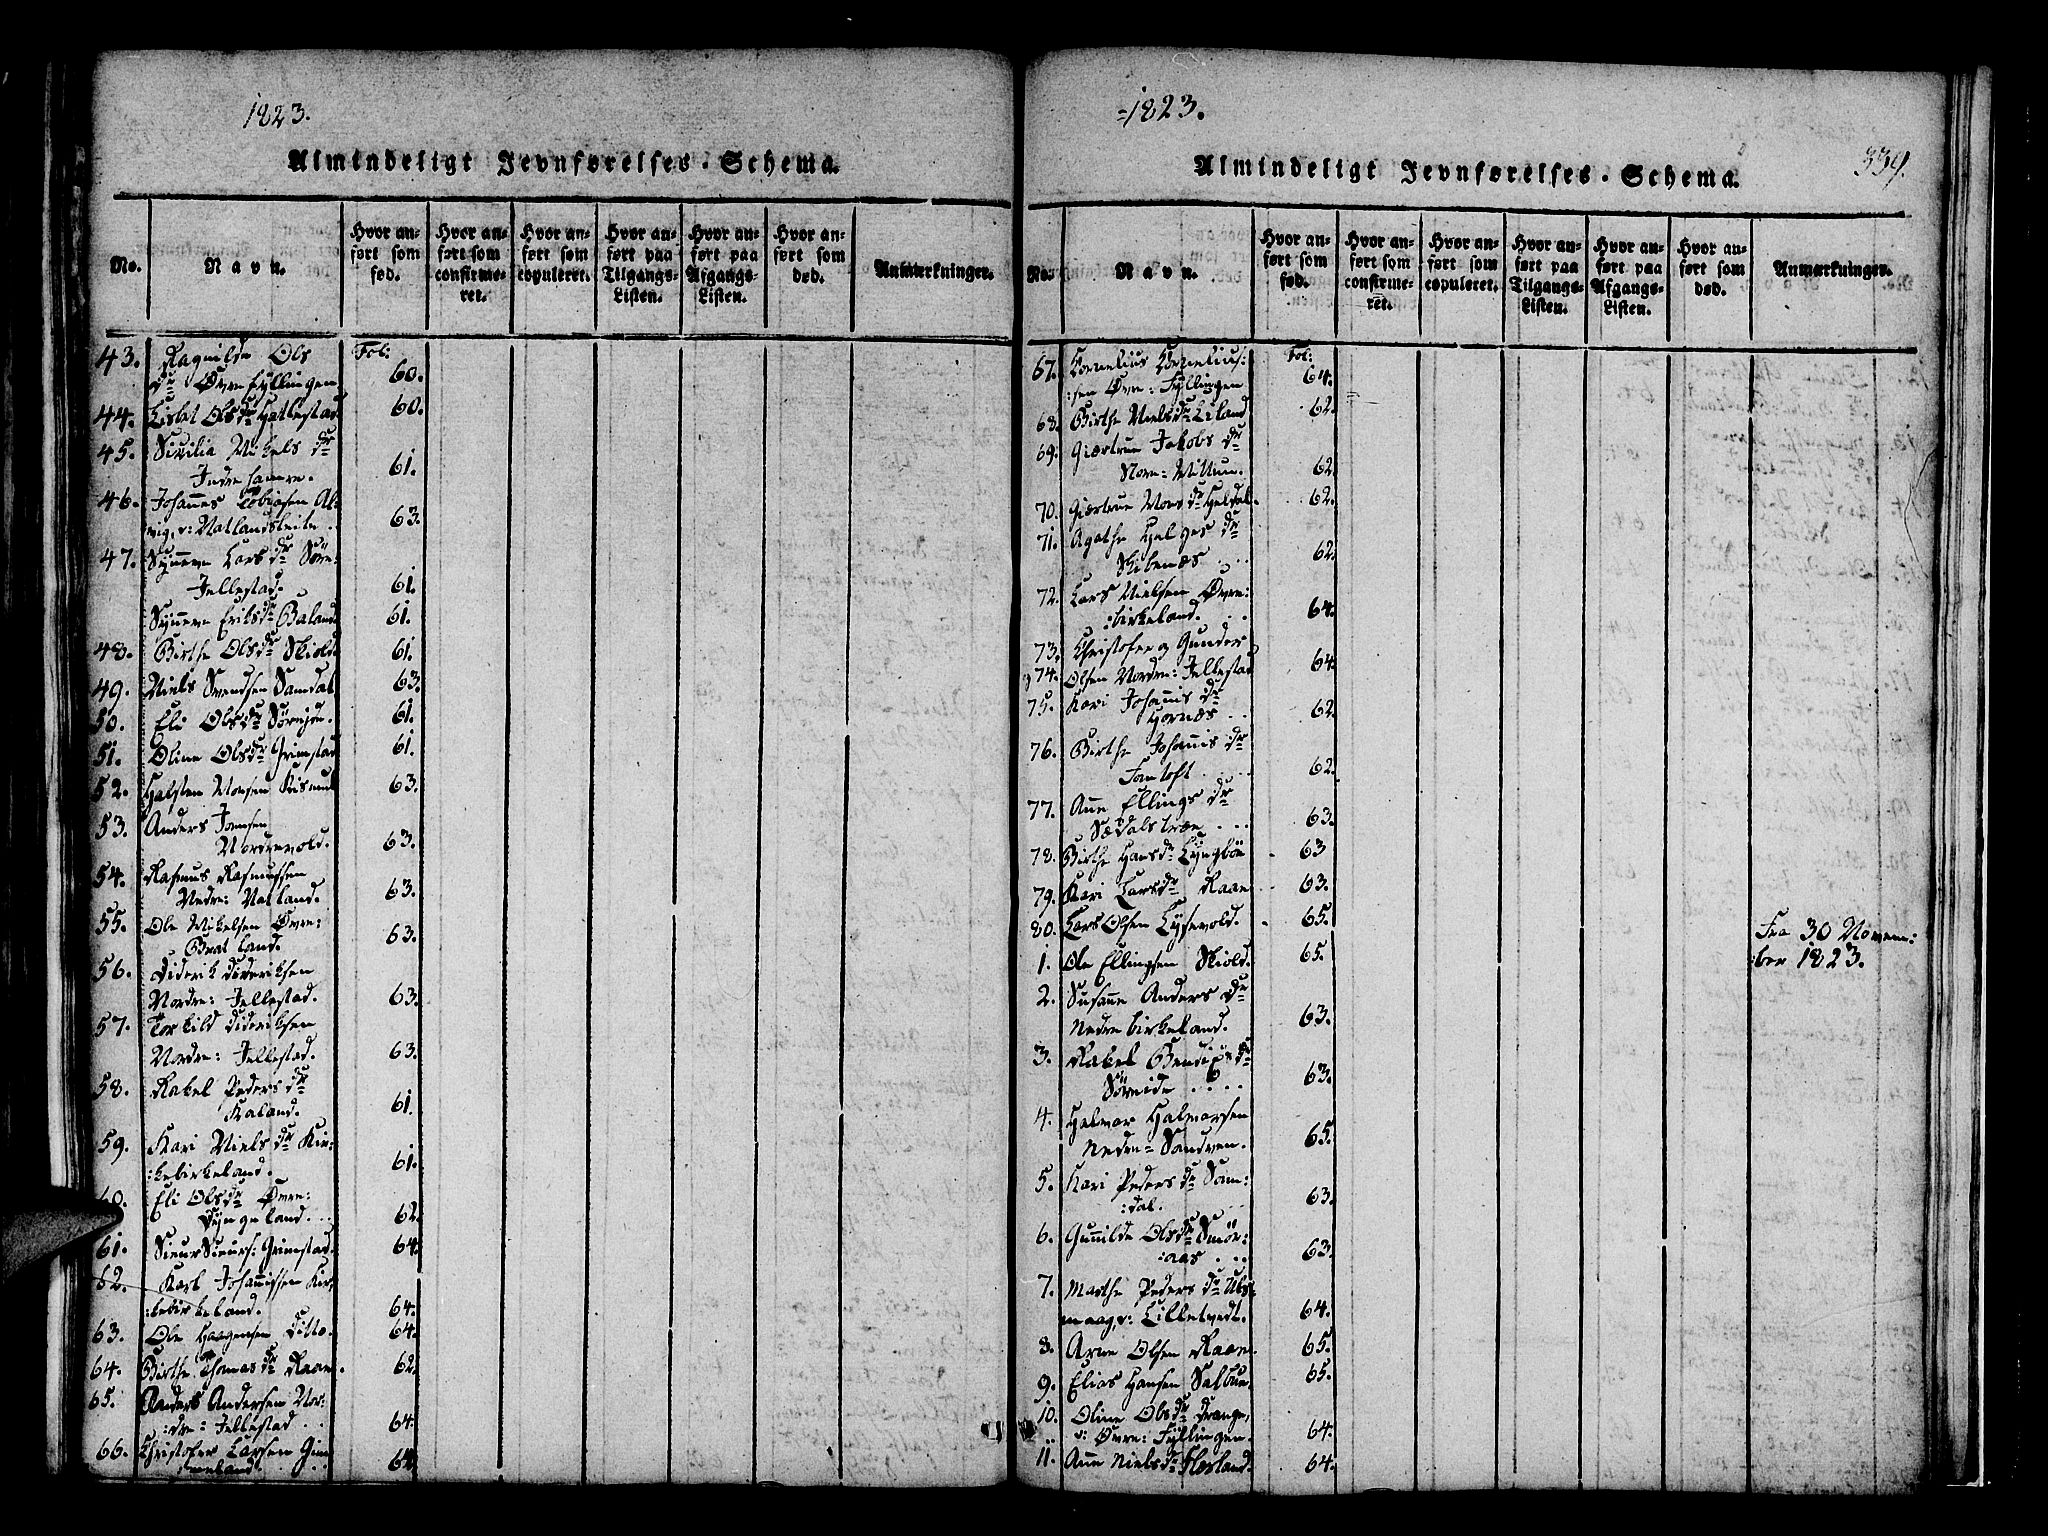 1823.
Almindeligt Jevnførelses-Schema.
No.
Navn.
Hvor anført som fød.
Hvor anført som confirmeret.
Hvor anført som copuleret.
Hvor anført paa Tilgangs-Listen.
Hvor anført paa Afgangs-Listen.
Hvor anført som død.
Anmærkninger.
Fol:
43. Ragnilde Ols
dr Øvrefyllingen. 60.
44. Lisbet Olsdr Hatlestad 60.
45. Sicilia Mikels dr
Indre hamre. 61.
46. Johannes Tobiasen Al
vig, v: Natlandsleite .. 63.
47. Synneve Lars dr Søre
Jellestad. 61.
Synneve Eriksdr Baland. 61.
48. Birthe Olsdr Skiold 61.
49. Niels Svendsen Samdal 63.
50. Eli Olsdr Søreide. 61.
51. Oline Olsdr Grimstad 61.
52. Halsten Monsen Rismul 63.
53. Anders Jonsen
Nordrevold. 63.
54. Rasmus Rasmussen
Nedre: Natland. 63.
55. Ole Mikelsen Øvre:
Bratland. 63.
56. Diderik Dideriksen
Nordre: Jellestad. 63.
57. Torkild Dideriksen
Nordre: Jellestad. 63.
58. Rakel Peders dr
Kaland. 61.
59. Kari Niels dr Kir:
:kebirkeland. 61.
60. Eli Olsdr Øvre:
Dyngeland. .. 62.
61. Sieur Sieurs: Grimstad. 64.
62. Karl Johannissen Kir:
:kebirkeland. 64.
63. Ole Haagensen Ditto. 64.
64. Birthe Thomasdr Raae. 62.
65. Anders Andersen Nor:
:dre: Jellestad .. 64.
66. Christofer Larsen Gim
meland. .. 64.
=1823.
339.
Almindeligt Jevnførelses-Schema.
No.
Navn.
Hvor anført som fød.
Hvor anført som confirmeret.
Hvor anført som copuleret.
Hvor anført paa Tilgangs-Listen.
Hvor anført paa Afgangs-Listen.
Hvor anført som død.
Anmærkninger.
Fol:
67. Cornelius Cornelius:
:sen Øvre: Fyllingen 64.
68. Birthe Nielsdr Liland 62.
69. Giertrue Jakobs dr
Store: Milde. 62.
70. Giertrue Mons dr Heldal. 62.
71. Agathe Helges dr
Skibenæs ... 62.
72. Lars Nielsen Øvre:
:birkeland. .. 64.
73. Christofer og Gunder
74. Olsen Nordre: Jellestad 64.
75. Kari Johannis dr
Hornæs .. 62.
76. Birthe Johannis dr
Fantoft .... 62.
77. Ane Ellings dr
Sædalstræe ... 63.
78. Birthe Hansdr Lyngbøe 63
79. Kari Larsdr Raae .. 63.
80. Lars Olsen Lysevold. 65.
1. Ole Ellingsen Skiold. 65.
Fra 30 Novem:
:ber 1823.
2. Susanne Anders dr
Nedre birkeland. 63.
3. Rakel Bendix dr
Søreide .... 63.
4. Halvor Halvorsen
Nedre= Sandven. 65.
5. Kari Peders dr Sam:
:dal. .. 63.
6. Gunnilde Olsdr Smør:
:aas ... 63.
7. Marthe Peders dr Ubs:
maag, v: Lilletvedt. 64.
8. Arne Olsen Raae. 65.
9. Elias Hansen Salbue. 65.
10. Oline Olsdr Drange,
v: Øvre: Fyllingen. 64.
11. Ane Nielsdr Flesland. 64.